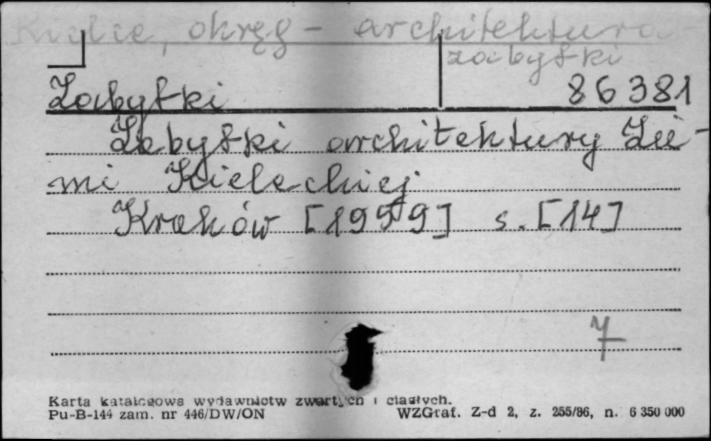 Kielce, okręg - architektura -
zabytki
Zabytki
86381
Zabytki architektury Zie-
mi Kieleckiej
Kraków [1959] s. [14]
7
Karta katalogowa wydawnictw zwartych i ciągłych.
Pu-B-144 zam. nr 446/DW/ON
WZGraf. Z-d 2, z. 255/86, n. 6 350 000